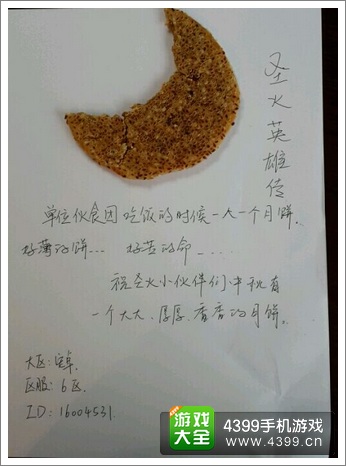 圣火英雄传
单位伙食团吃饭的时候一人一个月饼.
好薄的饼... 好苦的命....
祝圣火小伙伴们中秋有
一个大大、厚厚、香香的月饼。
大区:安卓
区服:6区.
ID:16004531.
游戏
大全
4399手机游戏
www.4399.cn